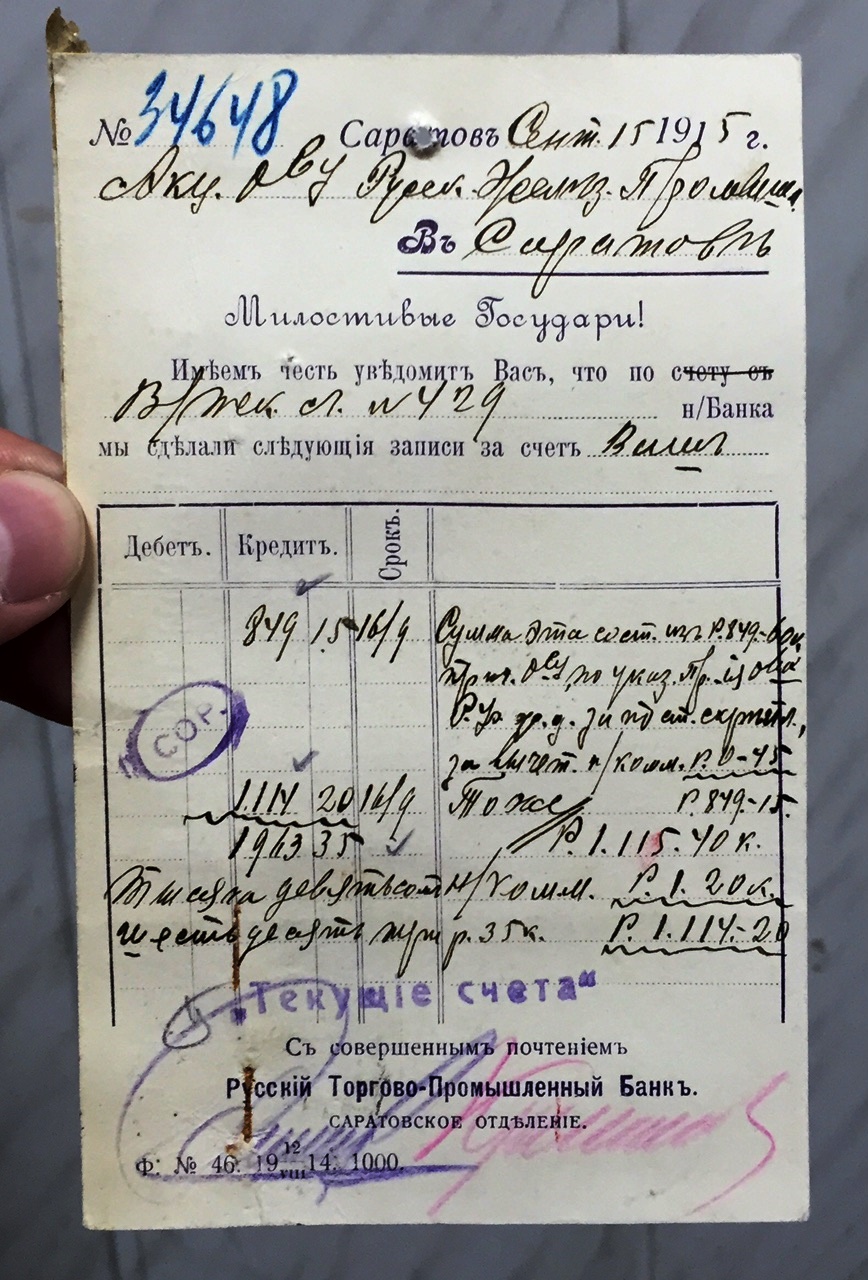 № 34648 Саратовъ Сент. 15 1915 г.
Акц. О-ву Русск.
Въ Саратовъ
Милостивые Государи!
Имѣемъ честь увѣдомить Васъ, что по счету съ
В/тек. сч. № 429 н/Банка
мы сдѣлали слѣдующія записи за счетъ Вашъ
Дебетъ. Кредитъ. Срокъ.
849 15 16/9 Сумма эта сост. изъ Р. 849.-60к
о-ву по указ.
СОР.
за вычет. н/комм. Р. 0-45
1.114 20 16/9 Тоже Р. 849.-15
1963 35 Р. 1.115.40 к.
Тысяча девятьсот н/комм. Р. 1.20к.
шестьдесятъ три р. 35к. Р. 1.114.-20
„Текущіе счета“
Съ совершеннымъ почтеніемъ
Русскій Торгово-Промышленный Банкъ.
САРАТОВСКОЕ ОТДѢЛЕНІЕ.
Ф: № 46. 19 12/VIII 14. 1000.